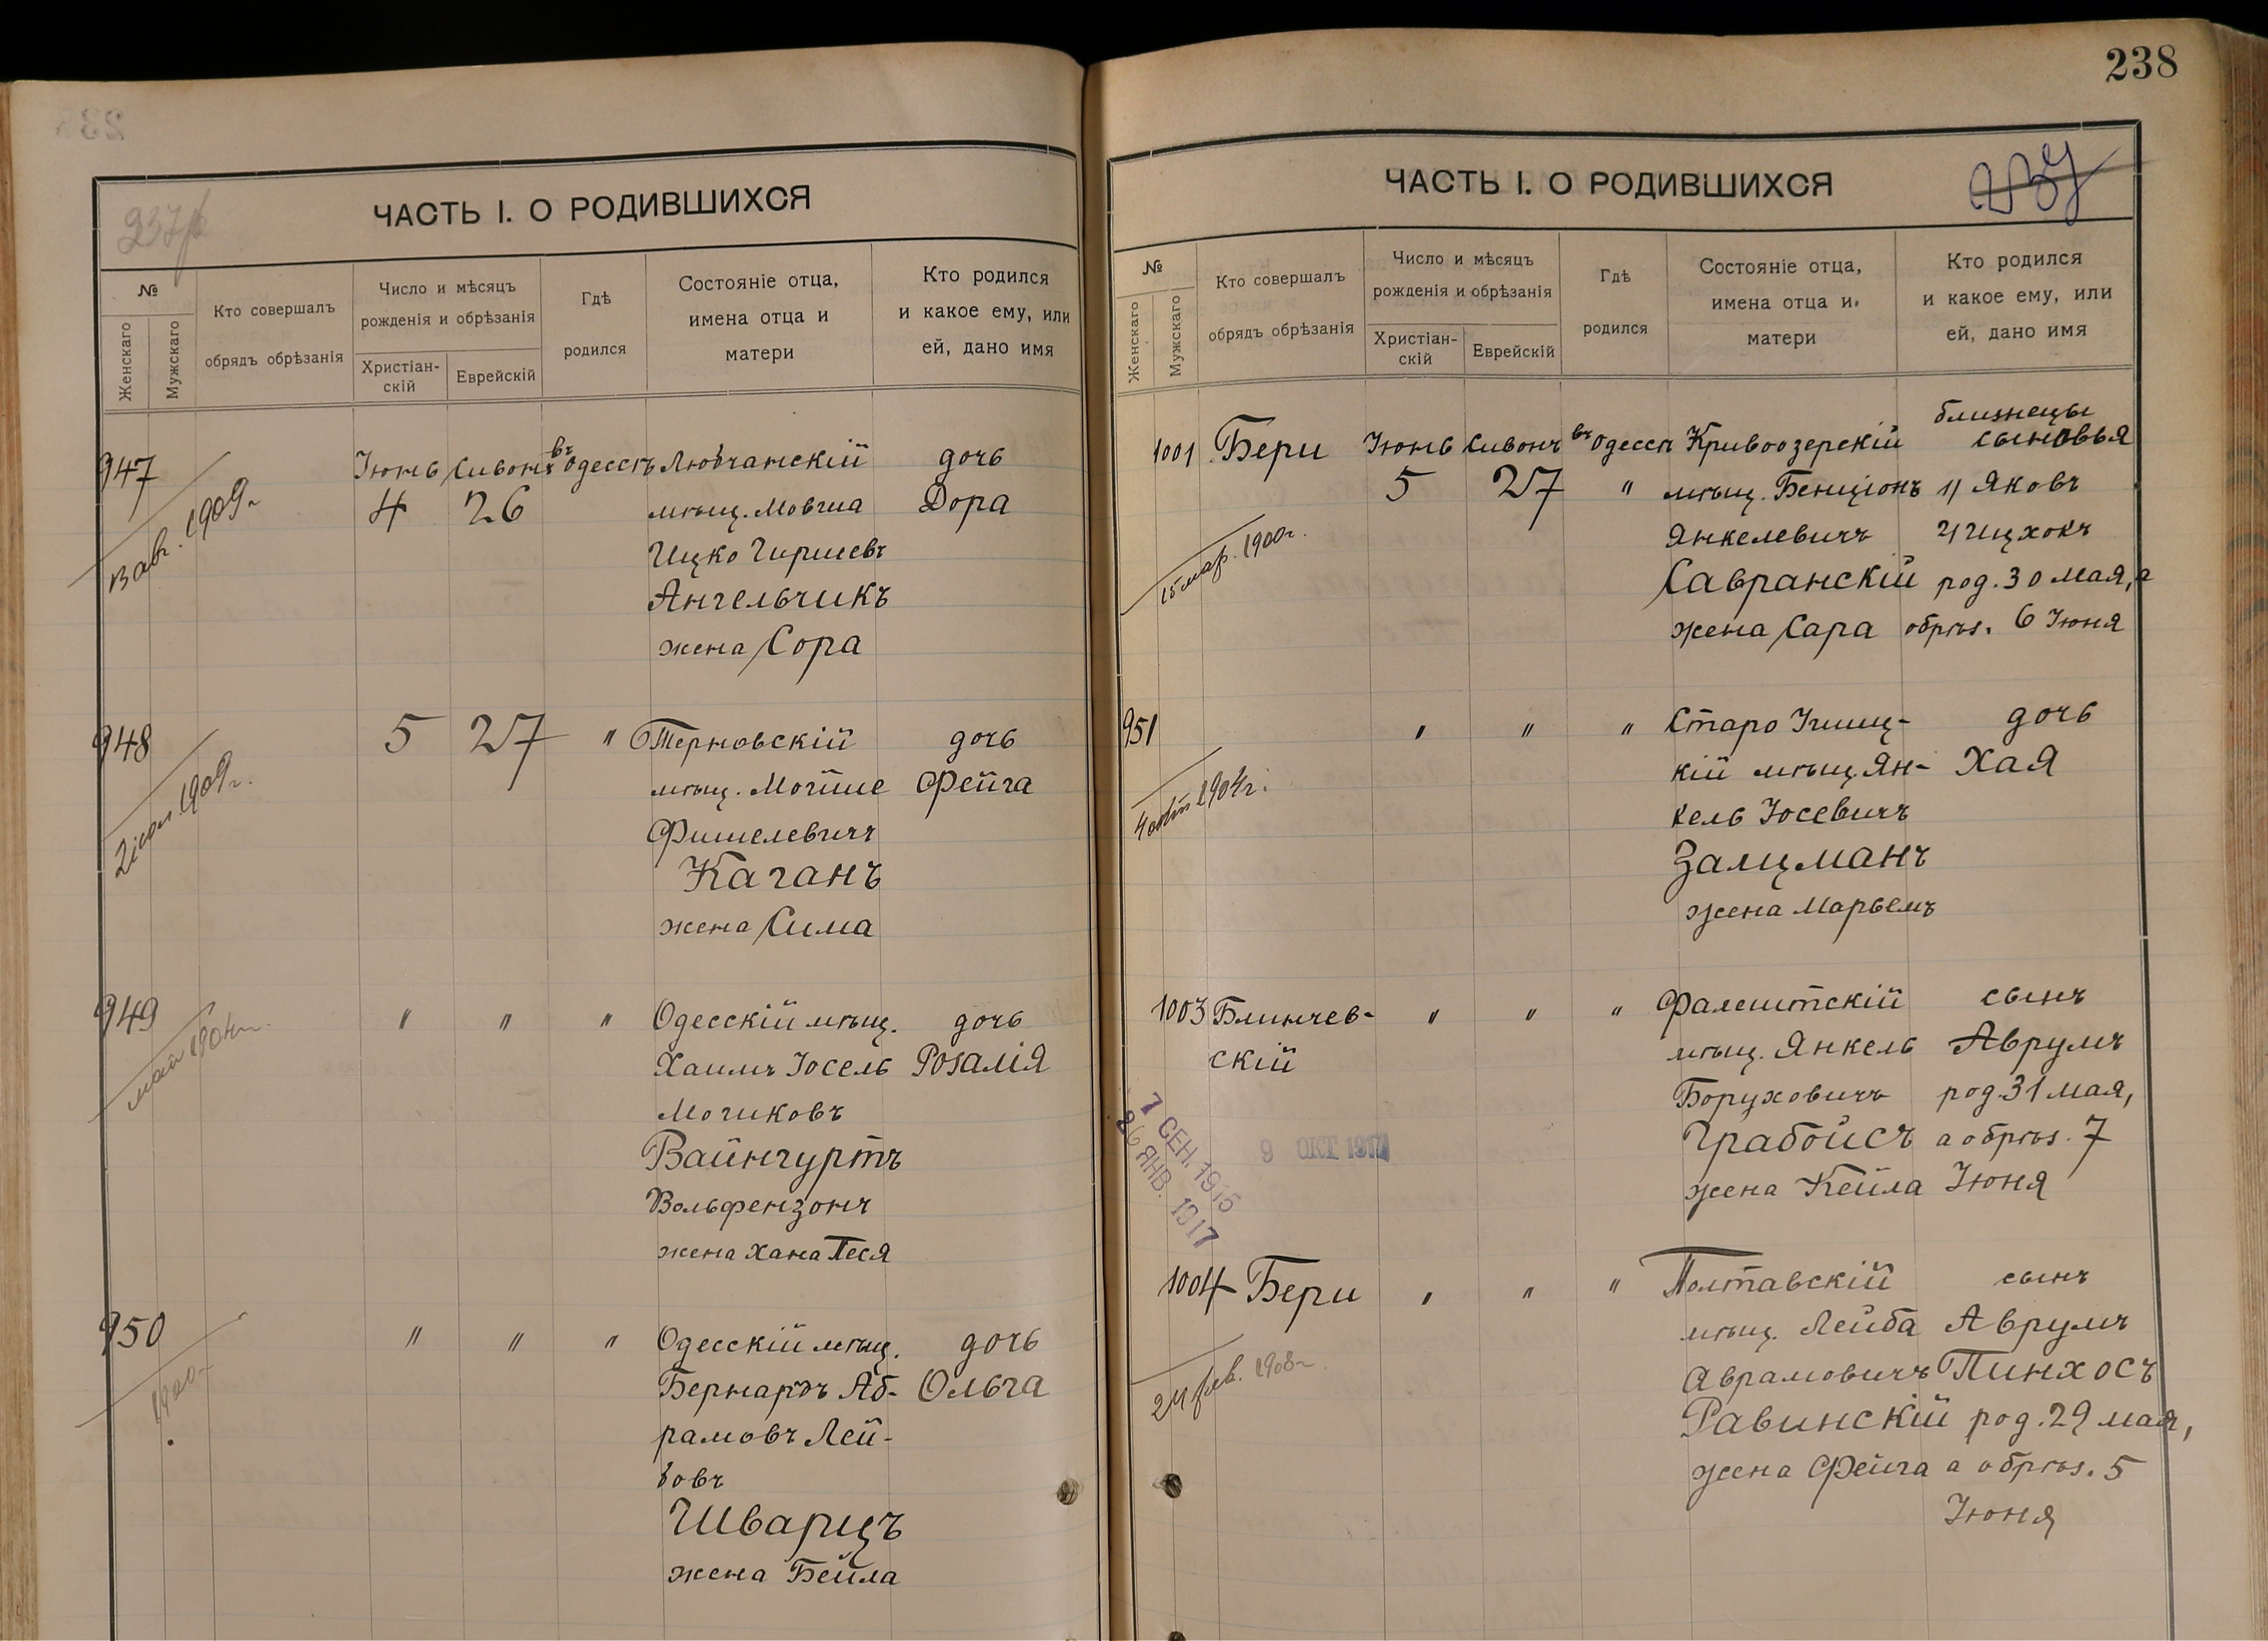 238
ЧАСТЬ I. О РОДИВШИХСЯ
№
Женскаго
Мужскаго
Кто совершалъ
обрядъ обрѣзанія
Число и мѣсяцъ
рожденія и обрѣзанія
Христіан-
скій
Еврейскій
Гдѣ
родился
Состояніе отца,
имена отца и
матери
Кто родился
и какое ему, или
ей, дано имя
947 Іюнь Сивонъ въ Одессѣ Любчанскій дочь
4 26 мѣщ. Мовша Дора
Ицко Гиршевъ
Ангельчикъ
жена Сора
13 авг. 1909г
948 5 27 " Терновскій дочь
мѣщ. Мойше Фейга
Фишелевичъ
Каганъ
жена Сима
1909г.
949 " " " Одесскій мѣщ. дочь
Хаимъ Іосель Розалія
Мошковъ
Вайнгуртъ
Вольфензонъ
жена Хана Песя
май
950 " " " Одесскій мѣщ. дочь
Бернардъ Аб- Ольга
рамовъ Лей-
бовъ
Шварцъ
жена Бейла
1900
ЧАСТЬ I. О РОДИВШИХСЯ
237
№
Женскаго
Мужскаго
Кто совершалъ
обрядъ обрѣзанія
Число и мѣсяцъ
рожденія и обрѣзанія
Христіан-
скій
Еврейскій
Гдѣ
родился
Состояніе отца,
имена отца и
матери
Кто родился
и какое ему, или
ей, дано имя
близнецы
1001 Бери Іюнь Сивонъ въ Одессѣ Кривоозерскій сыновья
5 27 " мѣщ. Бенціонъ 1) Яковъ
Янкелевичъ 2) Ицхокъ
Савранскій род. 30 мая, а
жена Сара обрѣз. 6 Іюня
15 мар. 1900г.
951 " " " Старо Ушиц- дочь
кій мѣщ. Ян- Хая
кель Іосевичъ
Залцманъ
жена Марьемъ
1904г.
1003 Блинчев- " " " Фалештскій сынъ
скій мѣщ. Янкель Аврумъ
Боруховичъ род. 31 мая,
Грабойсъ а обрѣз. 7
жена Кейла Іюня
7 СЕН. 1915
26 ЯНВ. 1917
9 ОКТ 1917
1004 Бери " " " Полтавскій сынъ
мѣщ. Лейба Аврумъ
Аврамовичъ Пинхосъ
Равинскій род. 29 мая,
жена Фейга а обрѣз. 5
Іюня
24 фев. 1908г.